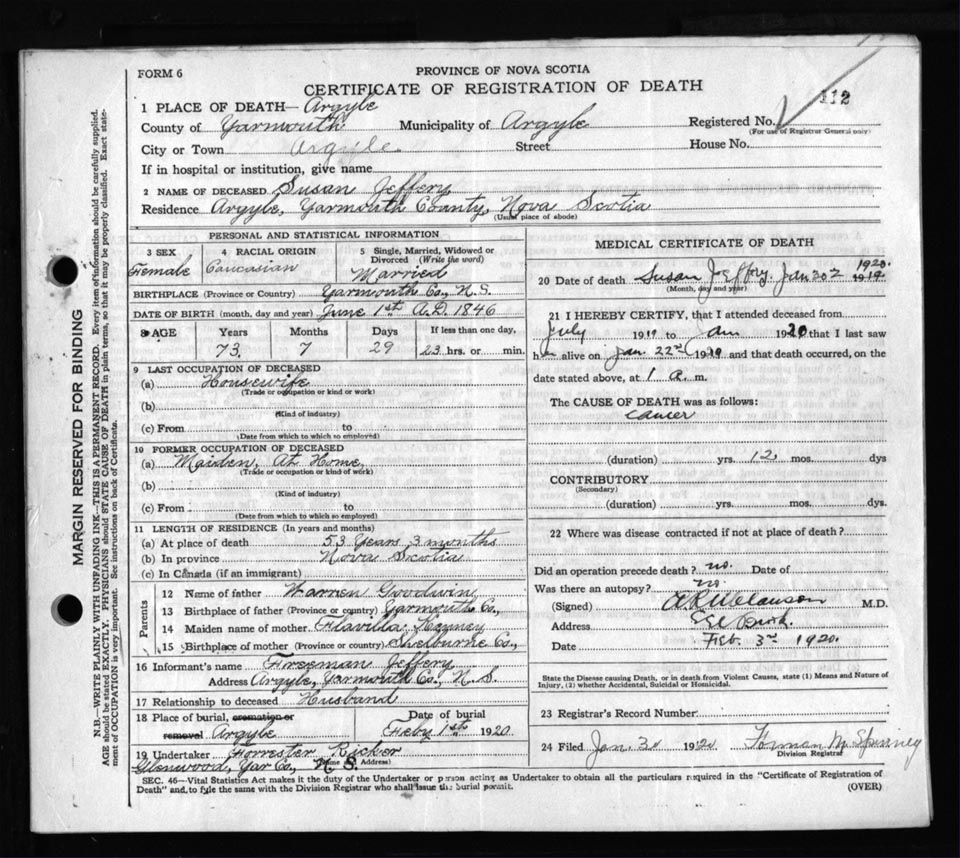 112
FORM 6
PROVINCE OF NOVA SCOTIA
CERTIFICATE OF REGISTRATION OF DEATH
1 PLACE OF DEATH— Argyle
County of Yarmouth Municipality of Argyle Registered No.
(For use of Registrar General only)
City or Town Argyle Street House No.
If in hospital or institution, give name
2 NAME OF DECEASED Susan Jeffery
Residence Argyle, Yarmouth County, Nova Scotia
(Usual place of abode)
PERSONAL AND STATISTICAL INFORMATION
3 SEX 4 RACIAL ORIGIN 5 Single, Married, Widowed or Divorced (Write the word)
Female Caucasian Married
BIRTHPLACE (Province or Country) Yarmouth Co., N.S.
DATE OF BIRTH (month, day and year) June 1st A.D. 1846
8 AGE Years Months Days If less than one day,
73 7 29 23 hrs. or min.
9 LAST OCCUPATION OF DECEASED
(a) Housewife
(Trade or occupation or kind or work)
(b)
(Kind of industry)
(c) From to
(Date from which to which so employed)
10 FORMER OCCUPATION OF DECEASED
(a) Maiden, At Home,
(Trade or occupation or kind of work)
(b)
(Kind of industry)
(c) From to
(Date from which to which so employed)
11 LENGTH OF RESIDENCE (In years and months)
(a) At place of death 53 Years, 3 months
(b) In province Nova Scotia
(c) In Canada (if an immigrant)
Parents
12 Name of father Warren Goodwin,
13 Birthplace of father (Province or country) Yarmouth Co.,
14 Maiden name of mother Flavilla
15 Birthplace of mother (Province or country) Shelburne Co.,
16 Informant's name Freeman Jeffery
Address Argyle, Yarmouth Co., N.S.
17 Relationship to deceased Husband
18 Place of burial, cremation or removal Argyle
Date of burial Feby 1st 1920
19 Undertaker Forrester Ricker
(Name & Address)
Glenwood, Yar Co., N.S.
MEDICAL CERTIFICATE OF DEATH
20 Date of death Susan Jeffry. Jan 30 1920. 191
(Month, day and year)
21 I HEREBY CERTIFY, that I attended deceased from
July 1919 to Jan 1920 that I last saw
h alive on Jan 22nd 19 and that death occurred, on the
date stated above, at 1 a. m.
The CAUSE OF DEATH was as follows:
Cancer
(duration) yrs. 12 mos. dys
CONTRIBUTORY
(Secondary)
(duration) yrs. mos. dys.
22 Where was disease contracted if not at place of death?
Did an operation precede death? no. Date of
Was there an autopsy? no
(Signed) M.D.
Address
Date Feb. 3rd 1920.
State the Disease causing Death, or in death from Violent Causes, state (1) Means and Nature of
Injury, (2) whether Accidental, Suicidal or Homicidal.
23 Registrar's Record Number
24 Filed Jan. 3 1920 Forman M Spinney
Division Registrar
SEC. 46—Vital Statistics Act makes it the duty of the Undertaker or person acting as Undertaker to obtain all the particulars required in the "Certificate of Registration of
Death" and to file the same with the Division Registrar who shall issue the burial permit.
(OVER)
MARGIN RESERVED FOR BINDING
N.B.—WRITE PLAINLY WITH UNFADING INK—THIS IS A PERMANENT RECORD. Every item of information should be carefully supplied.
AGE should be stated EXACTLY. PHYSICIANS should STATE CAUSE OF DEATH in plain terms, so that it may be properly classified. Exact state-
ment of OCCUPATION is very important. See instructions on back of Certificate.